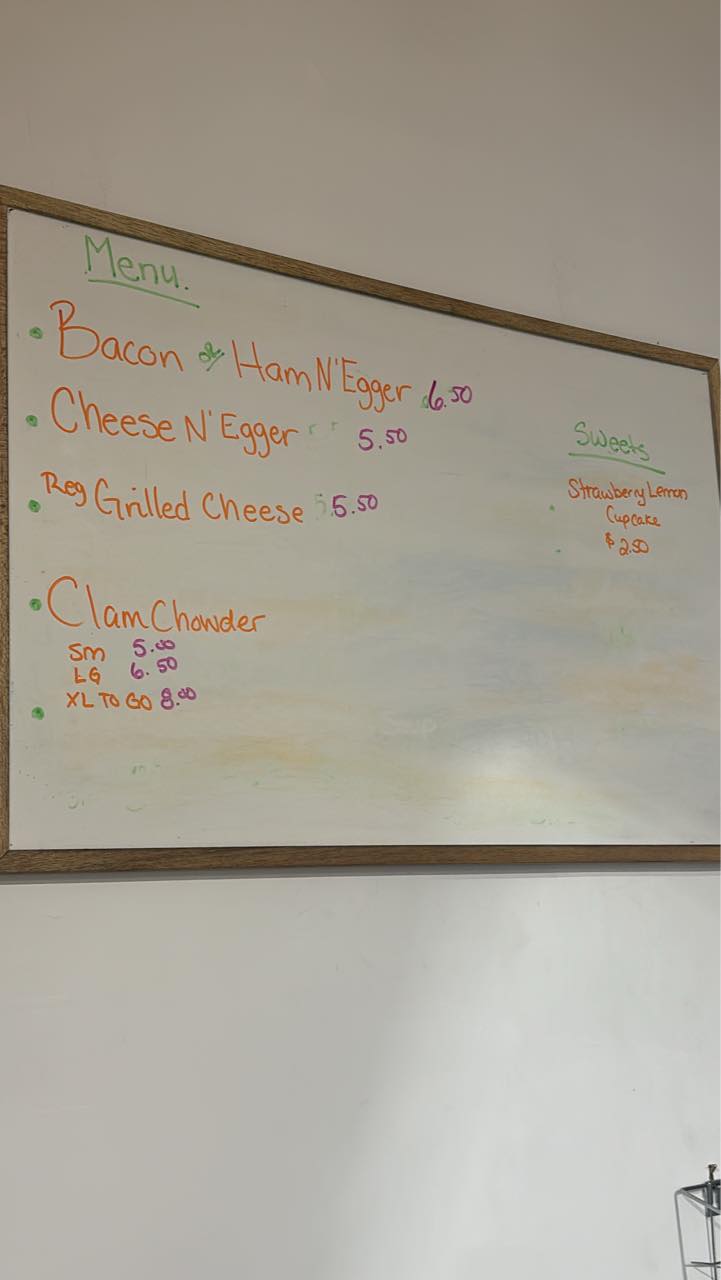 Menu.
Bacon or Ham N' Egger 6.50
Cheese N' Egger 5.50
Reg Grilled Cheese 5.50
Clam Chowder
Sm 5.00
LG 6.50
XL TO GO 8.00
Sweets
Strawberry Lemon
Cupcake
$2.50